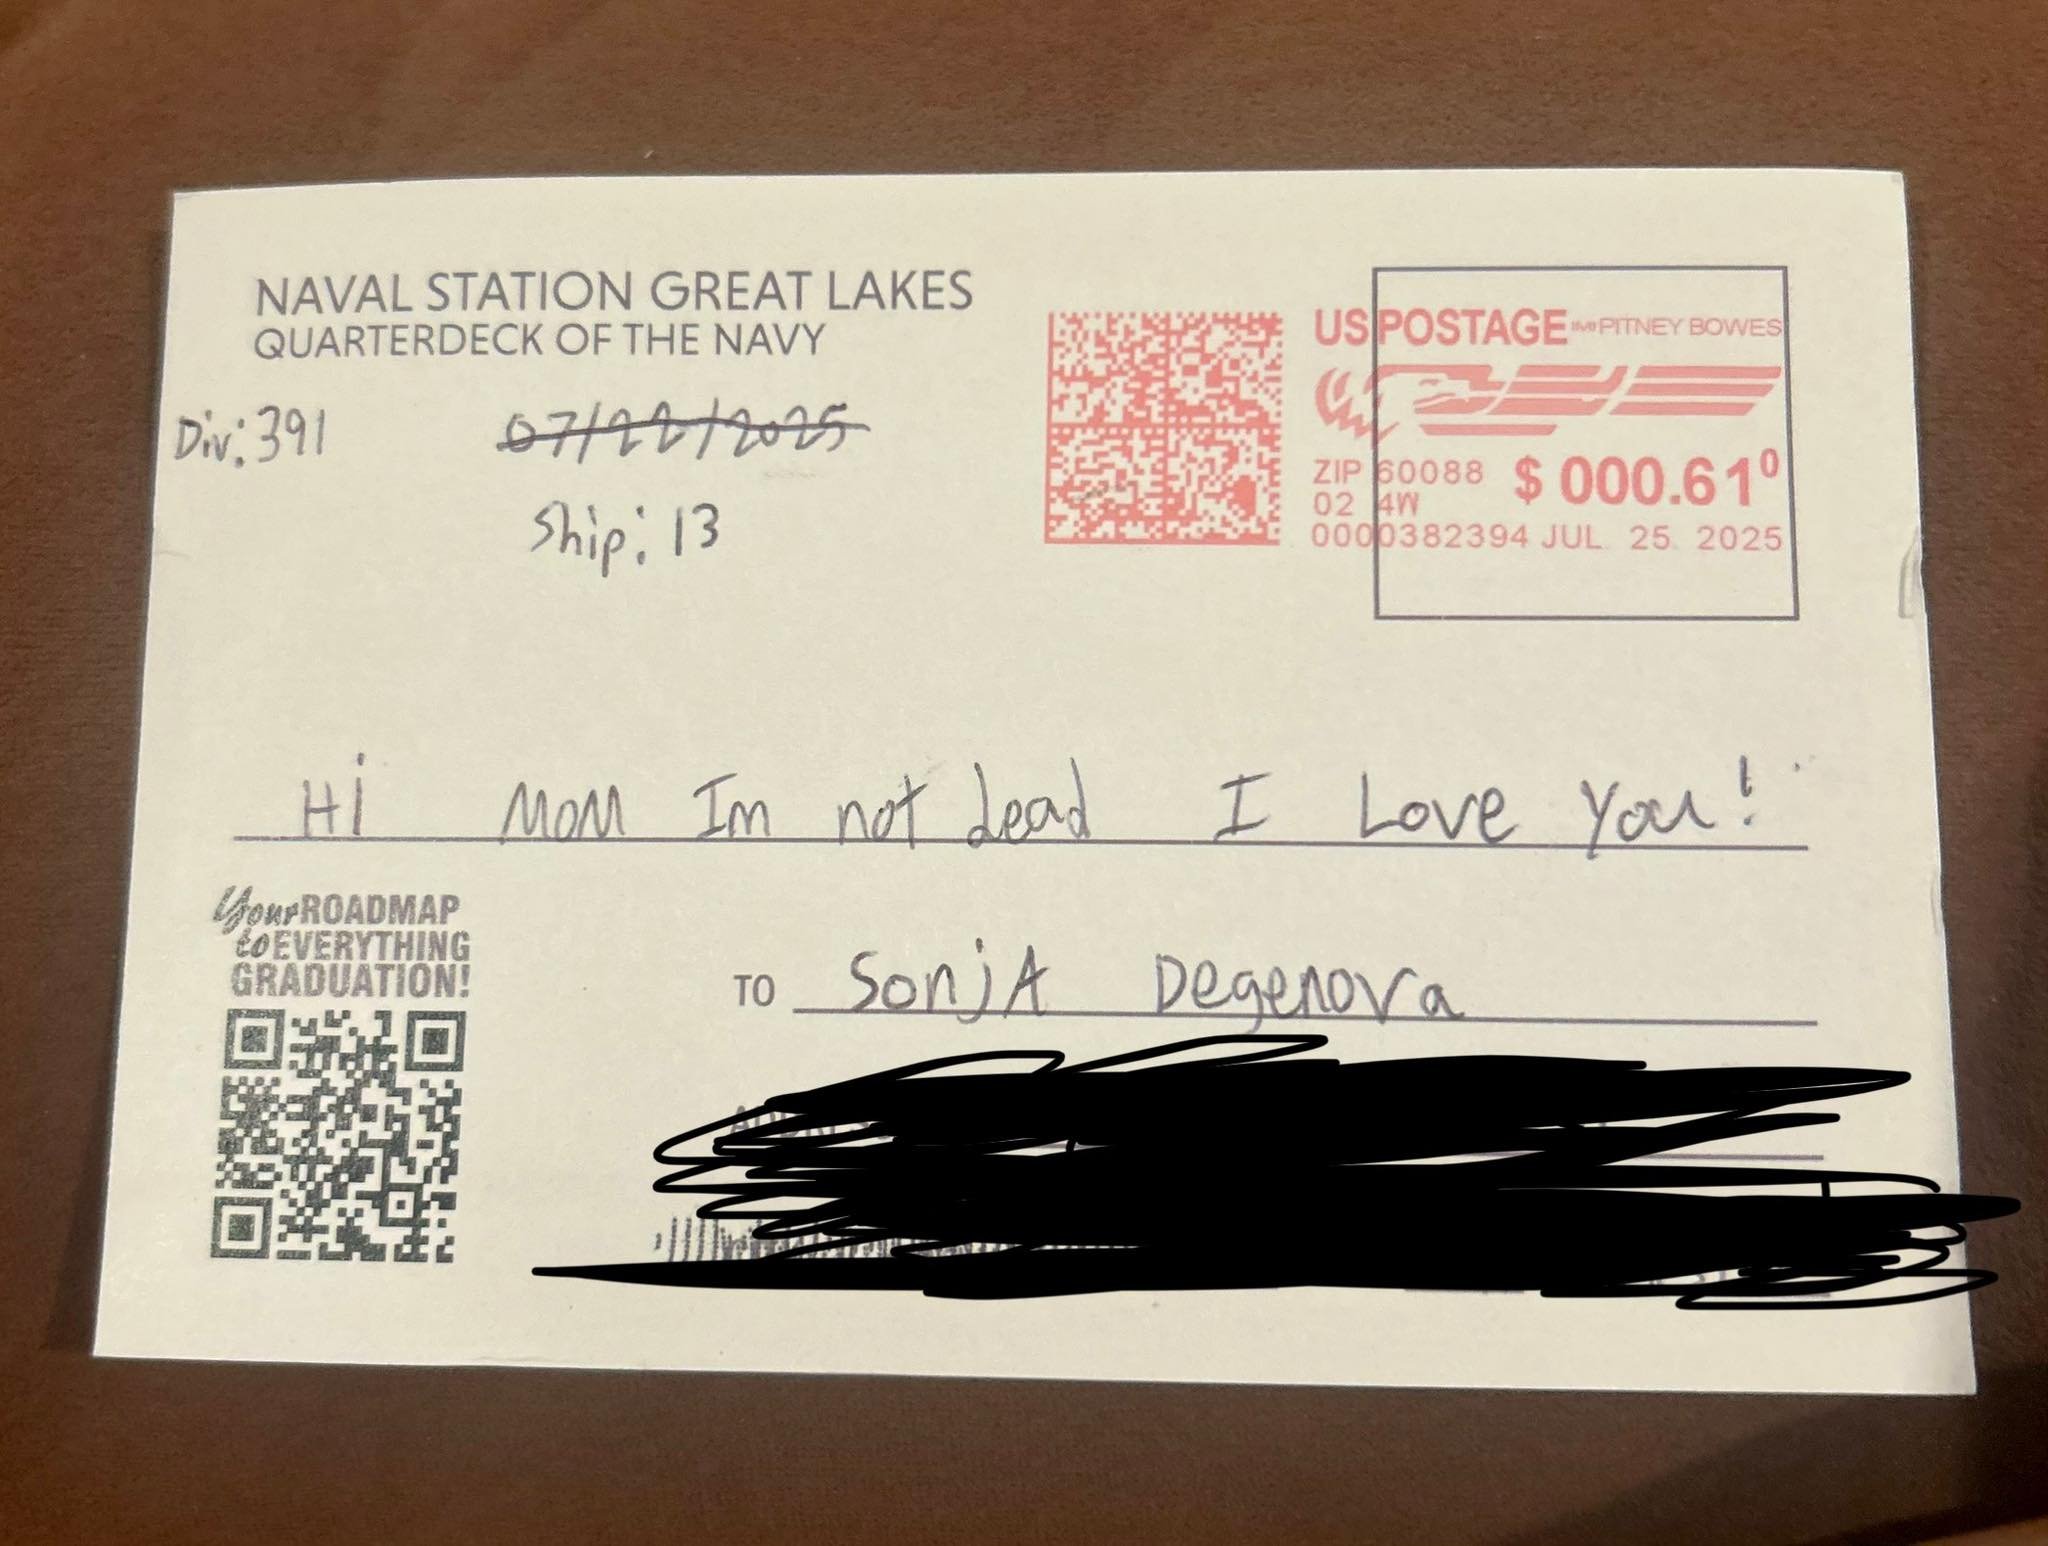 NAVAL STATION GREAT LAKES
QUARTERDECK OF THE NAVY
Div: 391
07/22/2025
Ship: 13
US POSTAGE IMI PITNEY BOWES
ZIP 60088 $ 000.61⁰
02 4W
0000382394 JUL 25 2025
Hi MOM Im not dead I Love You!
Your ROADMAP
to EVERYTHING
GRADUATION!
TO SonjA Degenova